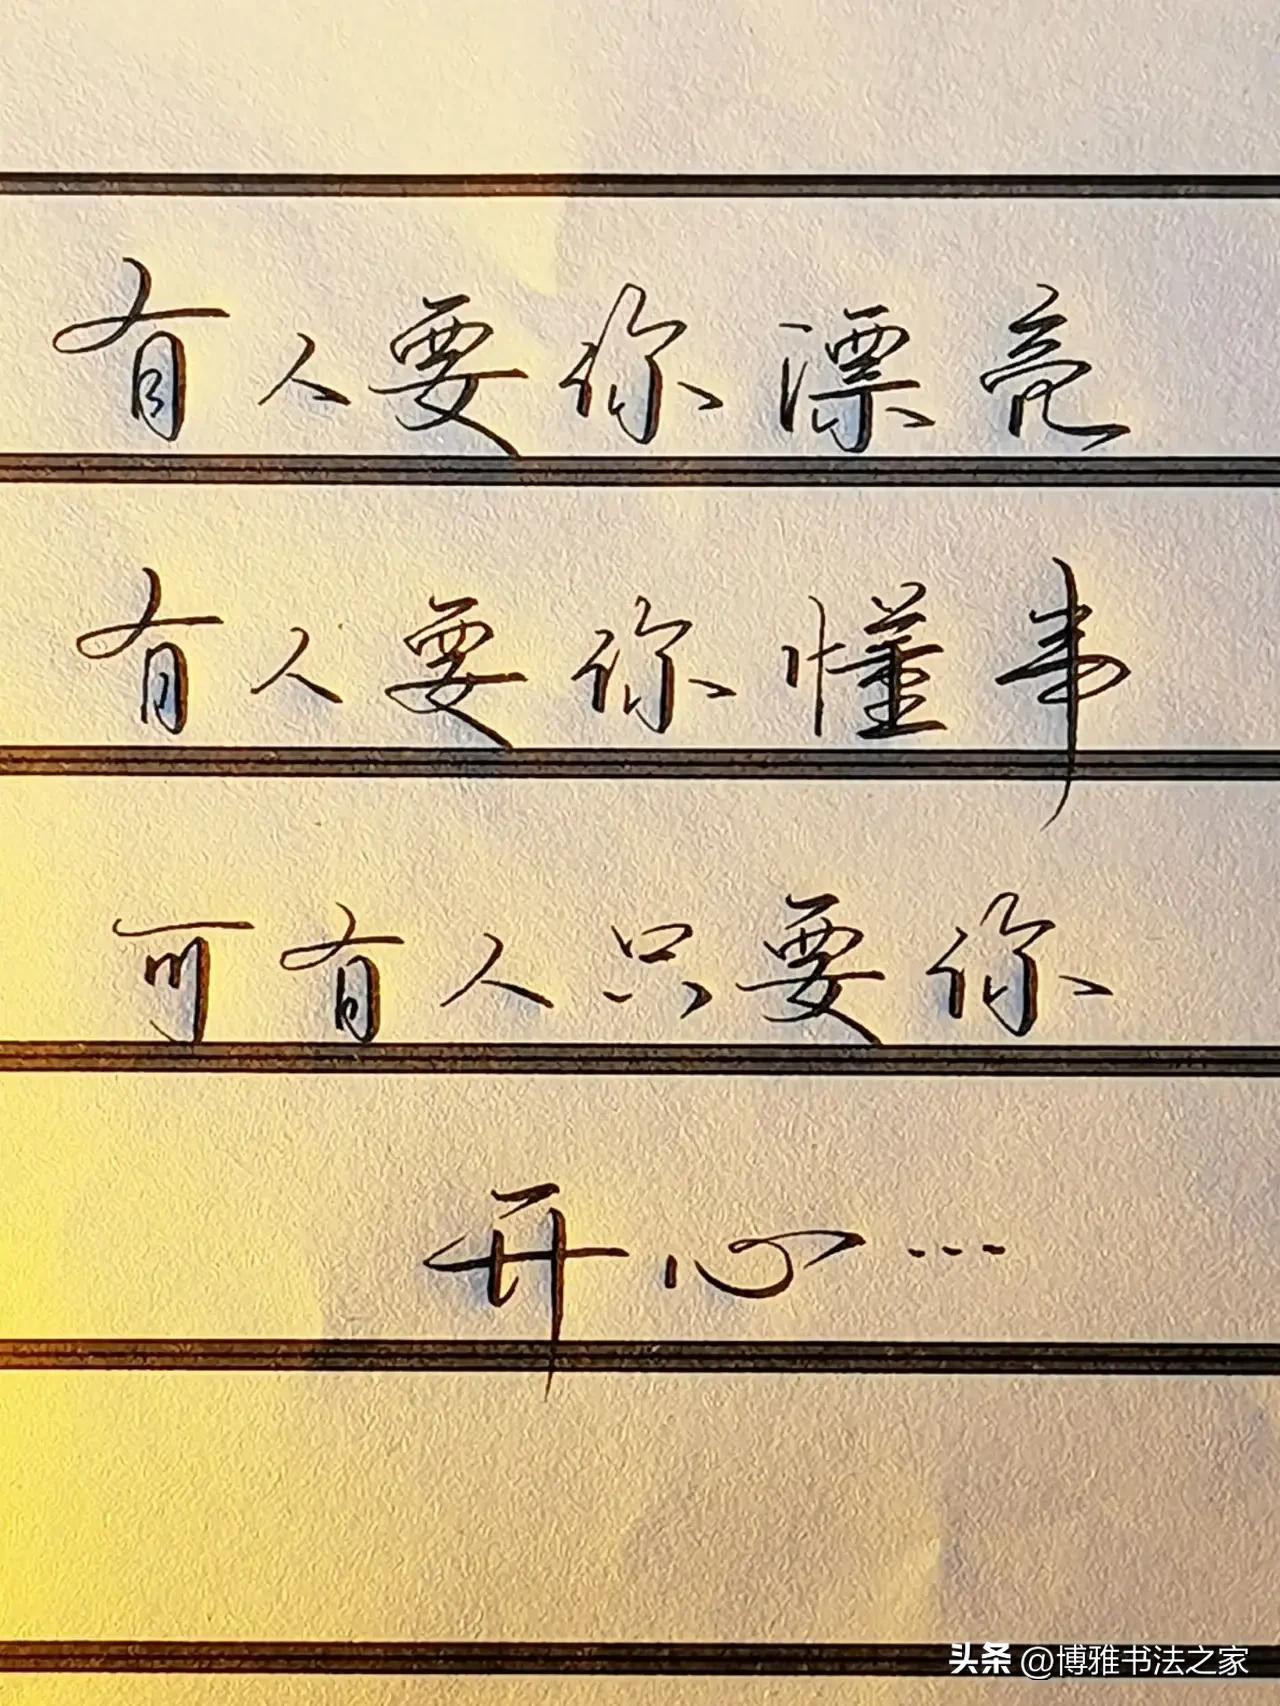 有人要你漂亮
有人要你懂事
可有人只要你
开心…
头条 @博雅书法之家